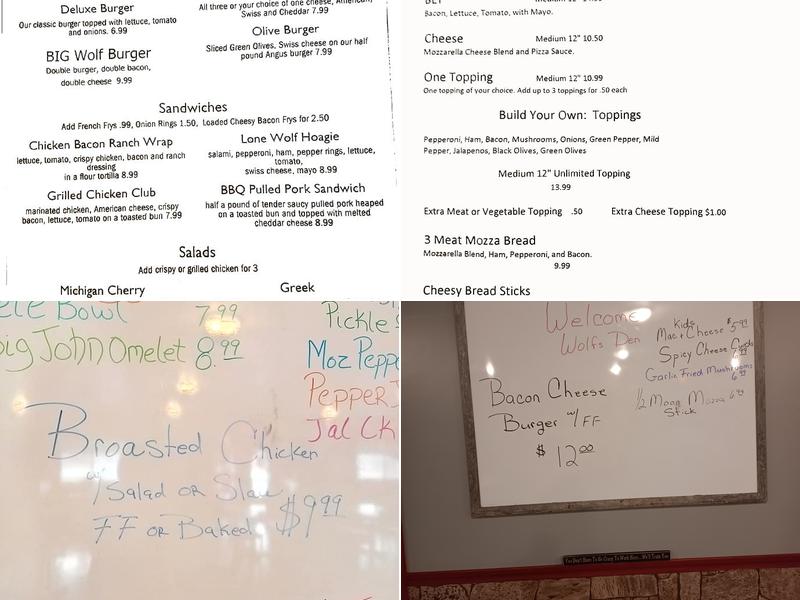 Deluxe Burger
Our classic burger topped with lettuce, tomato
and onions. 6.99
BIG Wolf Burger
Double burger, double bacon,
double cheese 9.99
All three or your choice of one cheese, American,
Swiss and Cheddar 7.99
Olive Burger
Sliced Green Olives, Swiss cheese on our half
pound Angus burger 7.99
Sandwiches
Add French Frys .99, Onion Rings 1.50, Loaded Cheesy Bacon Frys for 2.50
Chicken Bacon Ranch Wrap
lettuce, tomato, crispy chicken, bacon and ranch
dressing
in a flour tortilla 8.99
Grilled Chicken Club
marinated chicken, American cheese, crispy
bacon, lettuce, tomato on a toasted bun 7.99
Lone Wolf Hoagie
salami, pepperoni, ham, pepper rings, lettuce,
tomato,
swiss cheese, mayo 8.99
BBQ Pulled Pork Sandwich
half a pound of tender saucy pulled pork heaped
on a toasted bun and topped with melted
cheddar cheese 8.99
Salads
Add crispy or grilled chicken for 3
Michigan Cherry
Greek
Bacon, Lettuce, Tomato, with Mayo.
Cheese Medium 12" 10.50
Mozzarella Cheese Blend and Pizza Sauce.
One Topping Medium 12" 10.99
One topping of your choice. Add up to 3 toppings for .50 each
Build Your Own: Toppings
Pepperoni, Ham, Bacon, Mushrooms, Onions, Green Pepper, Mild
Pepper, Jalapenos, Black Olives, Green Olives
Medium 12" Unlimited Topping
13.99
Extra Meat or Vegetable Topping .50 Extra Cheese Topping $1.00
3 Meat Mozza Bread
Mozzarella Blend, Ham, Pepperoni, and Bacon.
9.99
Cheesy Bread Sticks
Bowl 7.99
Big John Omelet 8.99
Pickle
Moz
Pepper
Jal Ck
Broasted Chicken
w/ Salad or Slaw
FF or Baked $9.99
Welcome
Wolfs Den
Bacon Cheese
Burger w/ FF
$ 12.00
Kids
Mac + Cheese $5.99
Spicy Cheese
Garlic Fried Mushrooms
6.99
1/2 Moon Mozza
Stick
You Don't Have To Be Crazy To Work Here... We'll Train You